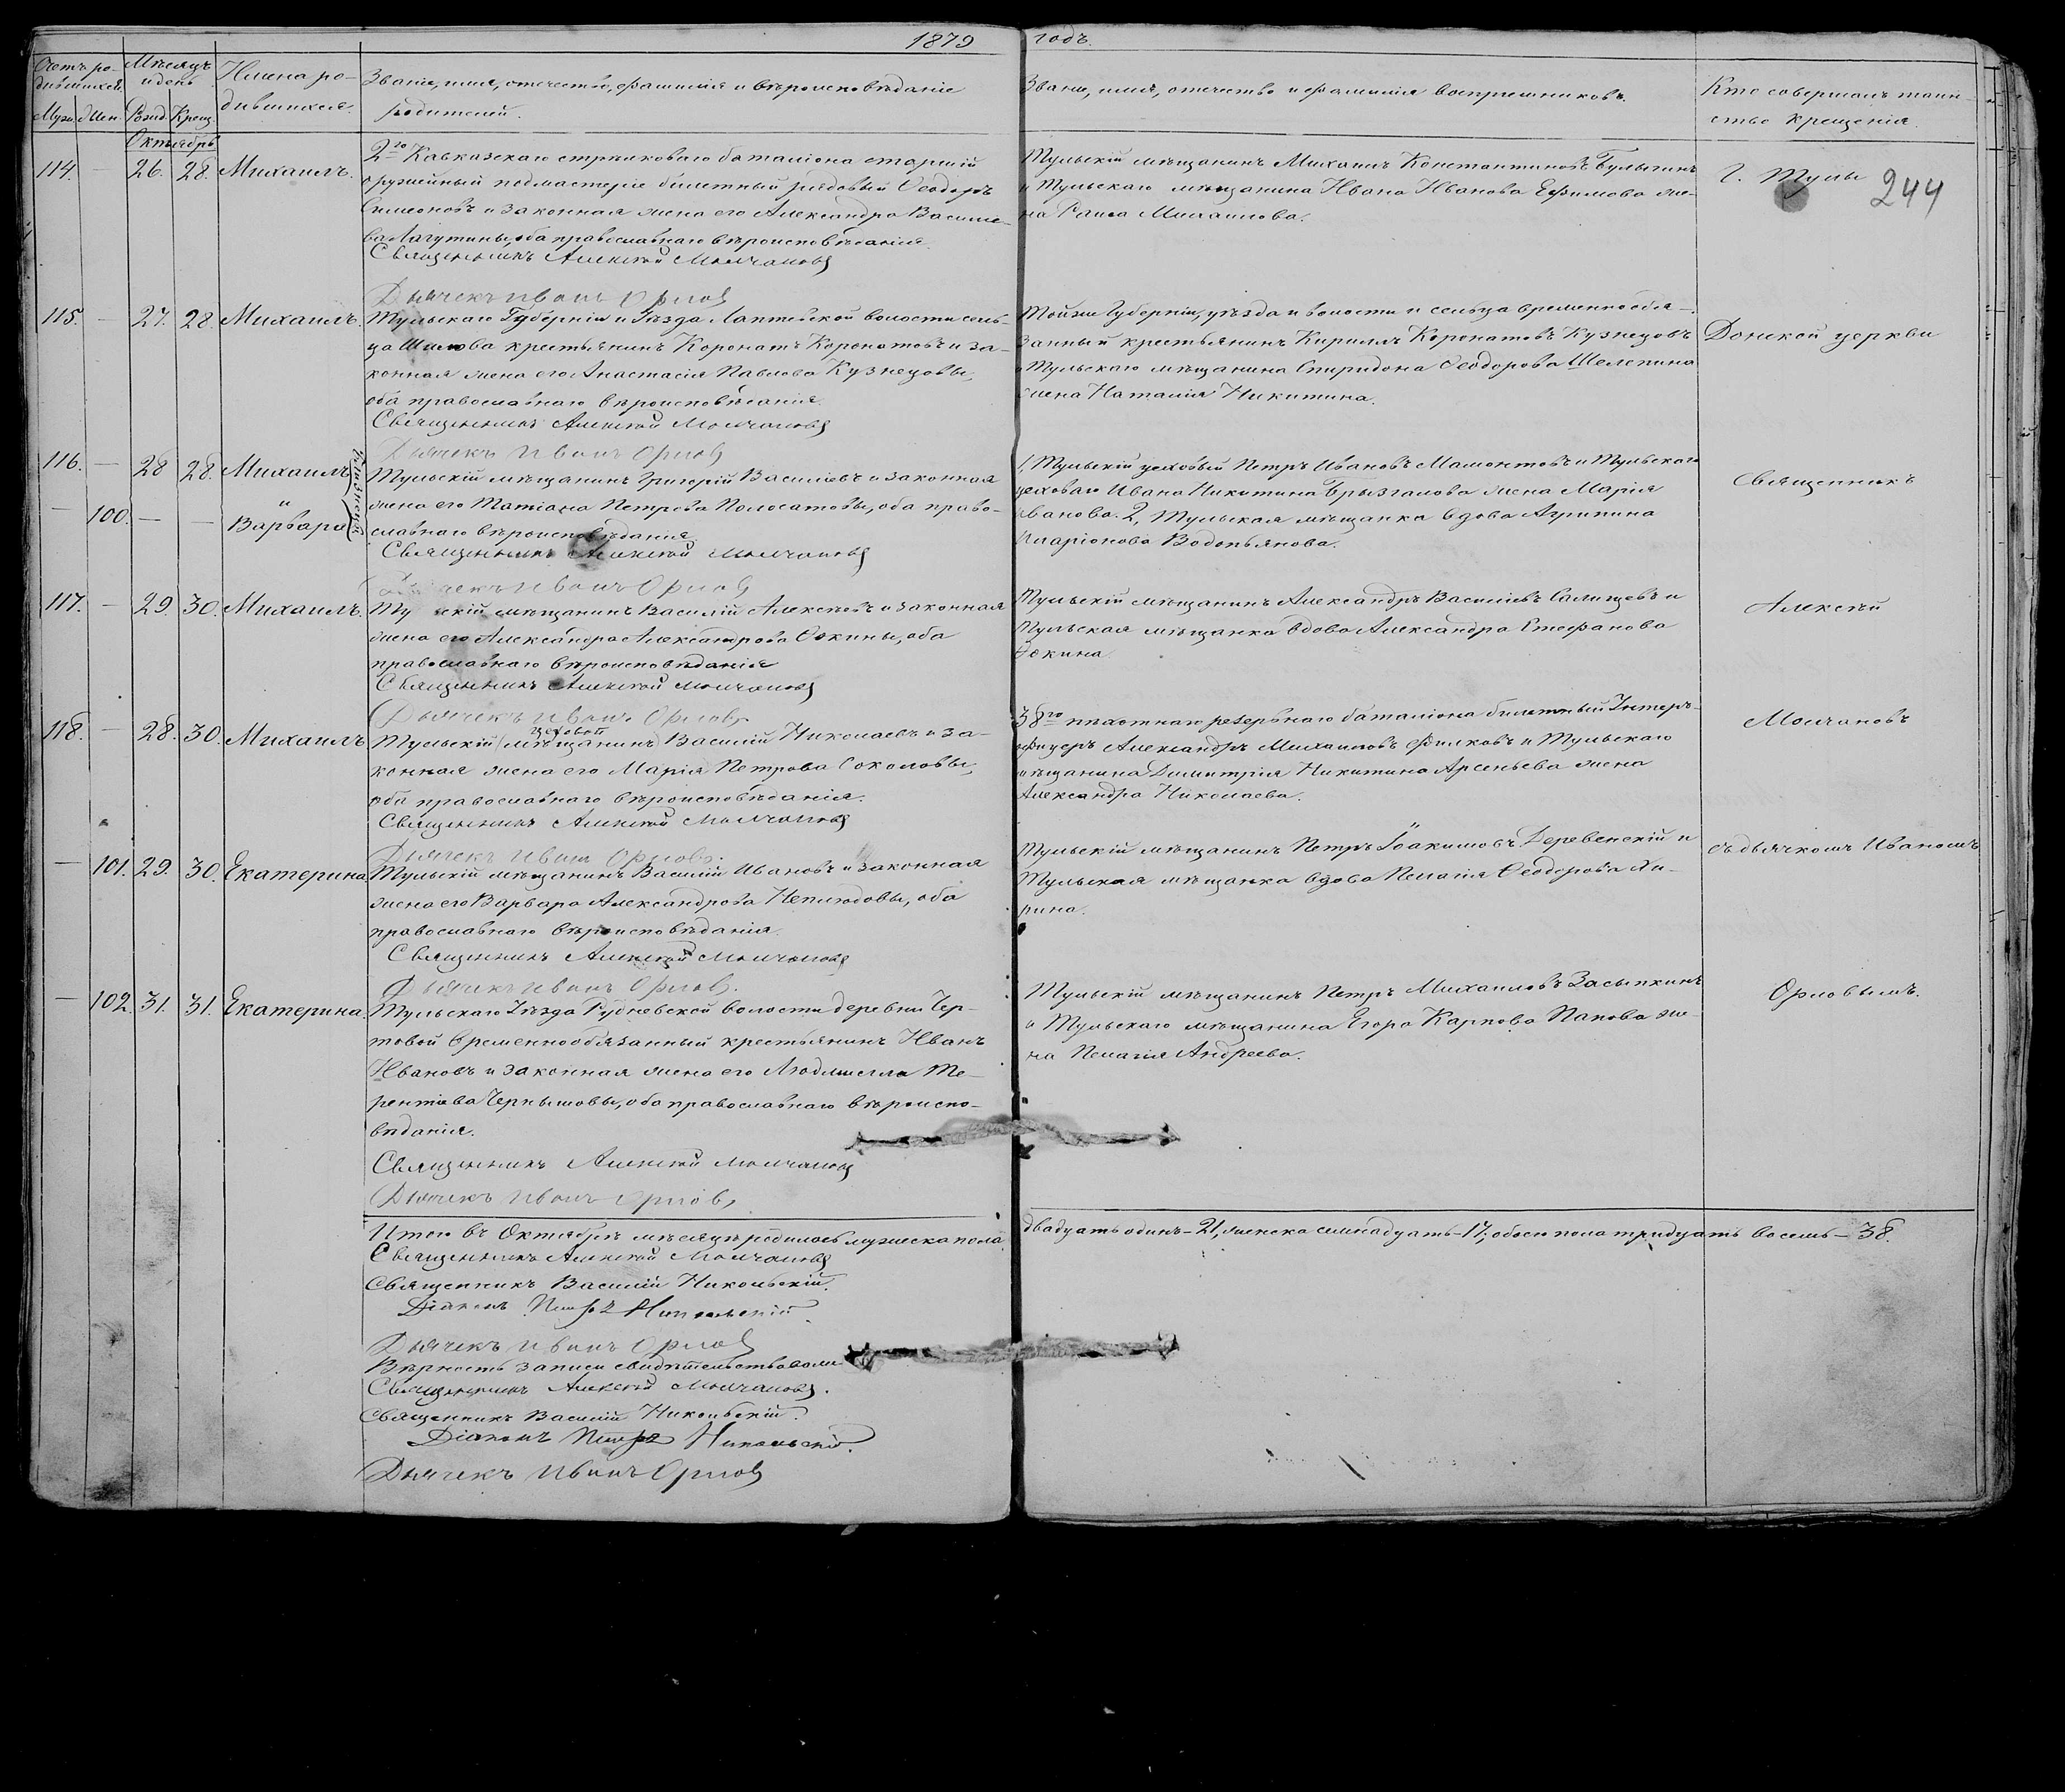 1879 годъ.
Счетъ родившихся.
Муж. Жен.
Мѣсяцъ и день
Рожд. Крещ.
Имена родившихся.
Званіе, имя, отчество, фамилія и вѣроисповѣданіе
родителей.
Званіе, имя, отчество и фамилія воспріемниковъ.
Кто совершалъ таин-
ство крещенія.
Октябрь
114. — 26. 28. Михаилъ.
2го Кавказскаго стрѣлковаго баталіона старшій
оружейный подмастеріе билетный рядовый Ѳеодоръ
Симеоновъ и законная жена его Александра Василье-
ва Лагутины, оба православнаго вѣроисповѣданія.
Священникъ Алексѣй Молчановъ
Дьячекъ Иванъ Орловъ
Тульскій мѣщанинъ Михаилъ Константиновъ Булыгинъ
и Тульскаго мѣщанина Ивана Иванова Ефимова же-
на Раиса Михаилова.
Г. Тулы
244
115. — 27. 28. Михаилъ.
Тульскаго Губерніи и Уѣзда Лаптевской волости сель-
ца крестьянинъ Коронатъ Коронатовъ и за-
конная жена его Анастасія Павлова Кузнецовы,
оба православнаго вѣроисповѣданія.
Священникъ Алексѣй Молчановъ
Дьячекъ Иванъ Орловъ
Тойже Губерніи, уѣзда и волости и сельца временнообя-
занный крестьянинъ Кириллъ Коронатовъ Кузнецовъ
и Тульскаго мѣщанина Спиридона Ѳеодорова Шелепина
жена Наталія Никитина.
Донской церкви
116. — 28 28. Михаилъ
и
— 100. — — Варвара
близнецы
Тульскій мѣщанинъ Григорій Василіевъ и законная
жена его Татіана Петрова Полосатовы, оба право-
славнаго вѣроисповѣданія
Священникъ Алексѣй Молчановъ
Дьячекъ Иванъ Орловъ
1, Тульскій цеховый Петръ Ивановъ Мамонтовъ и Тульскаго
цеховаго Ивана Никитина Брызгалова жена Марія
Иванова. 2, Тульская мѣщанка вдова Агрипина
Иларіонова Водопьянова.
Священникъ
117. — 29. 30. Михаилъ.
Тульскій мѣщанинъ Василій Алексѣевъ и законная
жена его Александра Александрова, оба
православнаго вѣроисповѣданія
Священникъ Алексѣй Молчановъ
Дьячекъ Иванъ Орловъ
Тульскій мѣщанинъ Александръ Василіевъ Салищевъ и
Тульская мѣщанка вдова Александра Стефанова
Алексѣй
118. — 28. 30. Михаилъ
цеховой
Тульскій (мѣщанинъ) Василій Николаевъ и за-
конная жена его Марія Петрова Соколовы,
оба православнаго вѣроисповѣданія.
Священникъ Алексѣй Молчановъ
Дьячекъ Иванъ Орловъ.
38го пѣхотнаго резервнаго баталіона билетный Унтеръ-
офицеръ Александръ Михаиловъ Филковъ и Тульскаго
мѣщанина Димитрія Никитина Арсеньева жена
Александра Николаева.
Молчановъ
— 101. 29. 30. Екатерина.
Тульскій мѣщанинъ Василій Ивановъ и законная
жена его Варвара Александрова Неплюдовы, оба
православнаго вѣроисповѣданія.
Священникъ Алексѣй Молчановъ
Дьячекъ Иванъ Орловъ.
Тульскій мѣщанинъ Петръ Іоакимовъ Деревенскій и
Тульская мѣщанка вдова Пелагія Ѳеодорова
съ дьячкомъ Иваномъ
— 102. 31. 31. Екатерина.
Тульскаго Уѣзда Рудневской волости деревни Чер-
товой временнообязанный крестьянинъ Иванъ
Ивановъ и законная жена его Людмилла Те-
рентіева Чернышовы, оба православнаго вѣроиспо-
вѣданія.
Священникъ Алексѣй Молчановъ
Дьячекъ Иванъ Орловъ
Тульскій мѣщанинъ Петръ Михаиловъ Засыпкинъ
и Тульскаго мѣщанина Егора Карпова Папова же-
на Пелагія Андреева.
Орловымъ.
Итого въ Октябрѣ мѣсяцѣ родилось мужеска пола двадцать одинъ — 21, женска семнадцать — 17, обоего пола тридцать восемь — 38.
Священникъ Алексѣй Молчановъ
Священникъ Василій Никольскій.
Діаконъ Петръ Никольскій.
Дьячекъ Иванъ Орловъ
Вѣрность записи свидѣтельствовали
Священникъ Алексѣй Молчановъ.
Священникъ Василій Никольскій.
Діаконъ Петръ Никольскій.
Дьячекъ Иванъ Орловъ